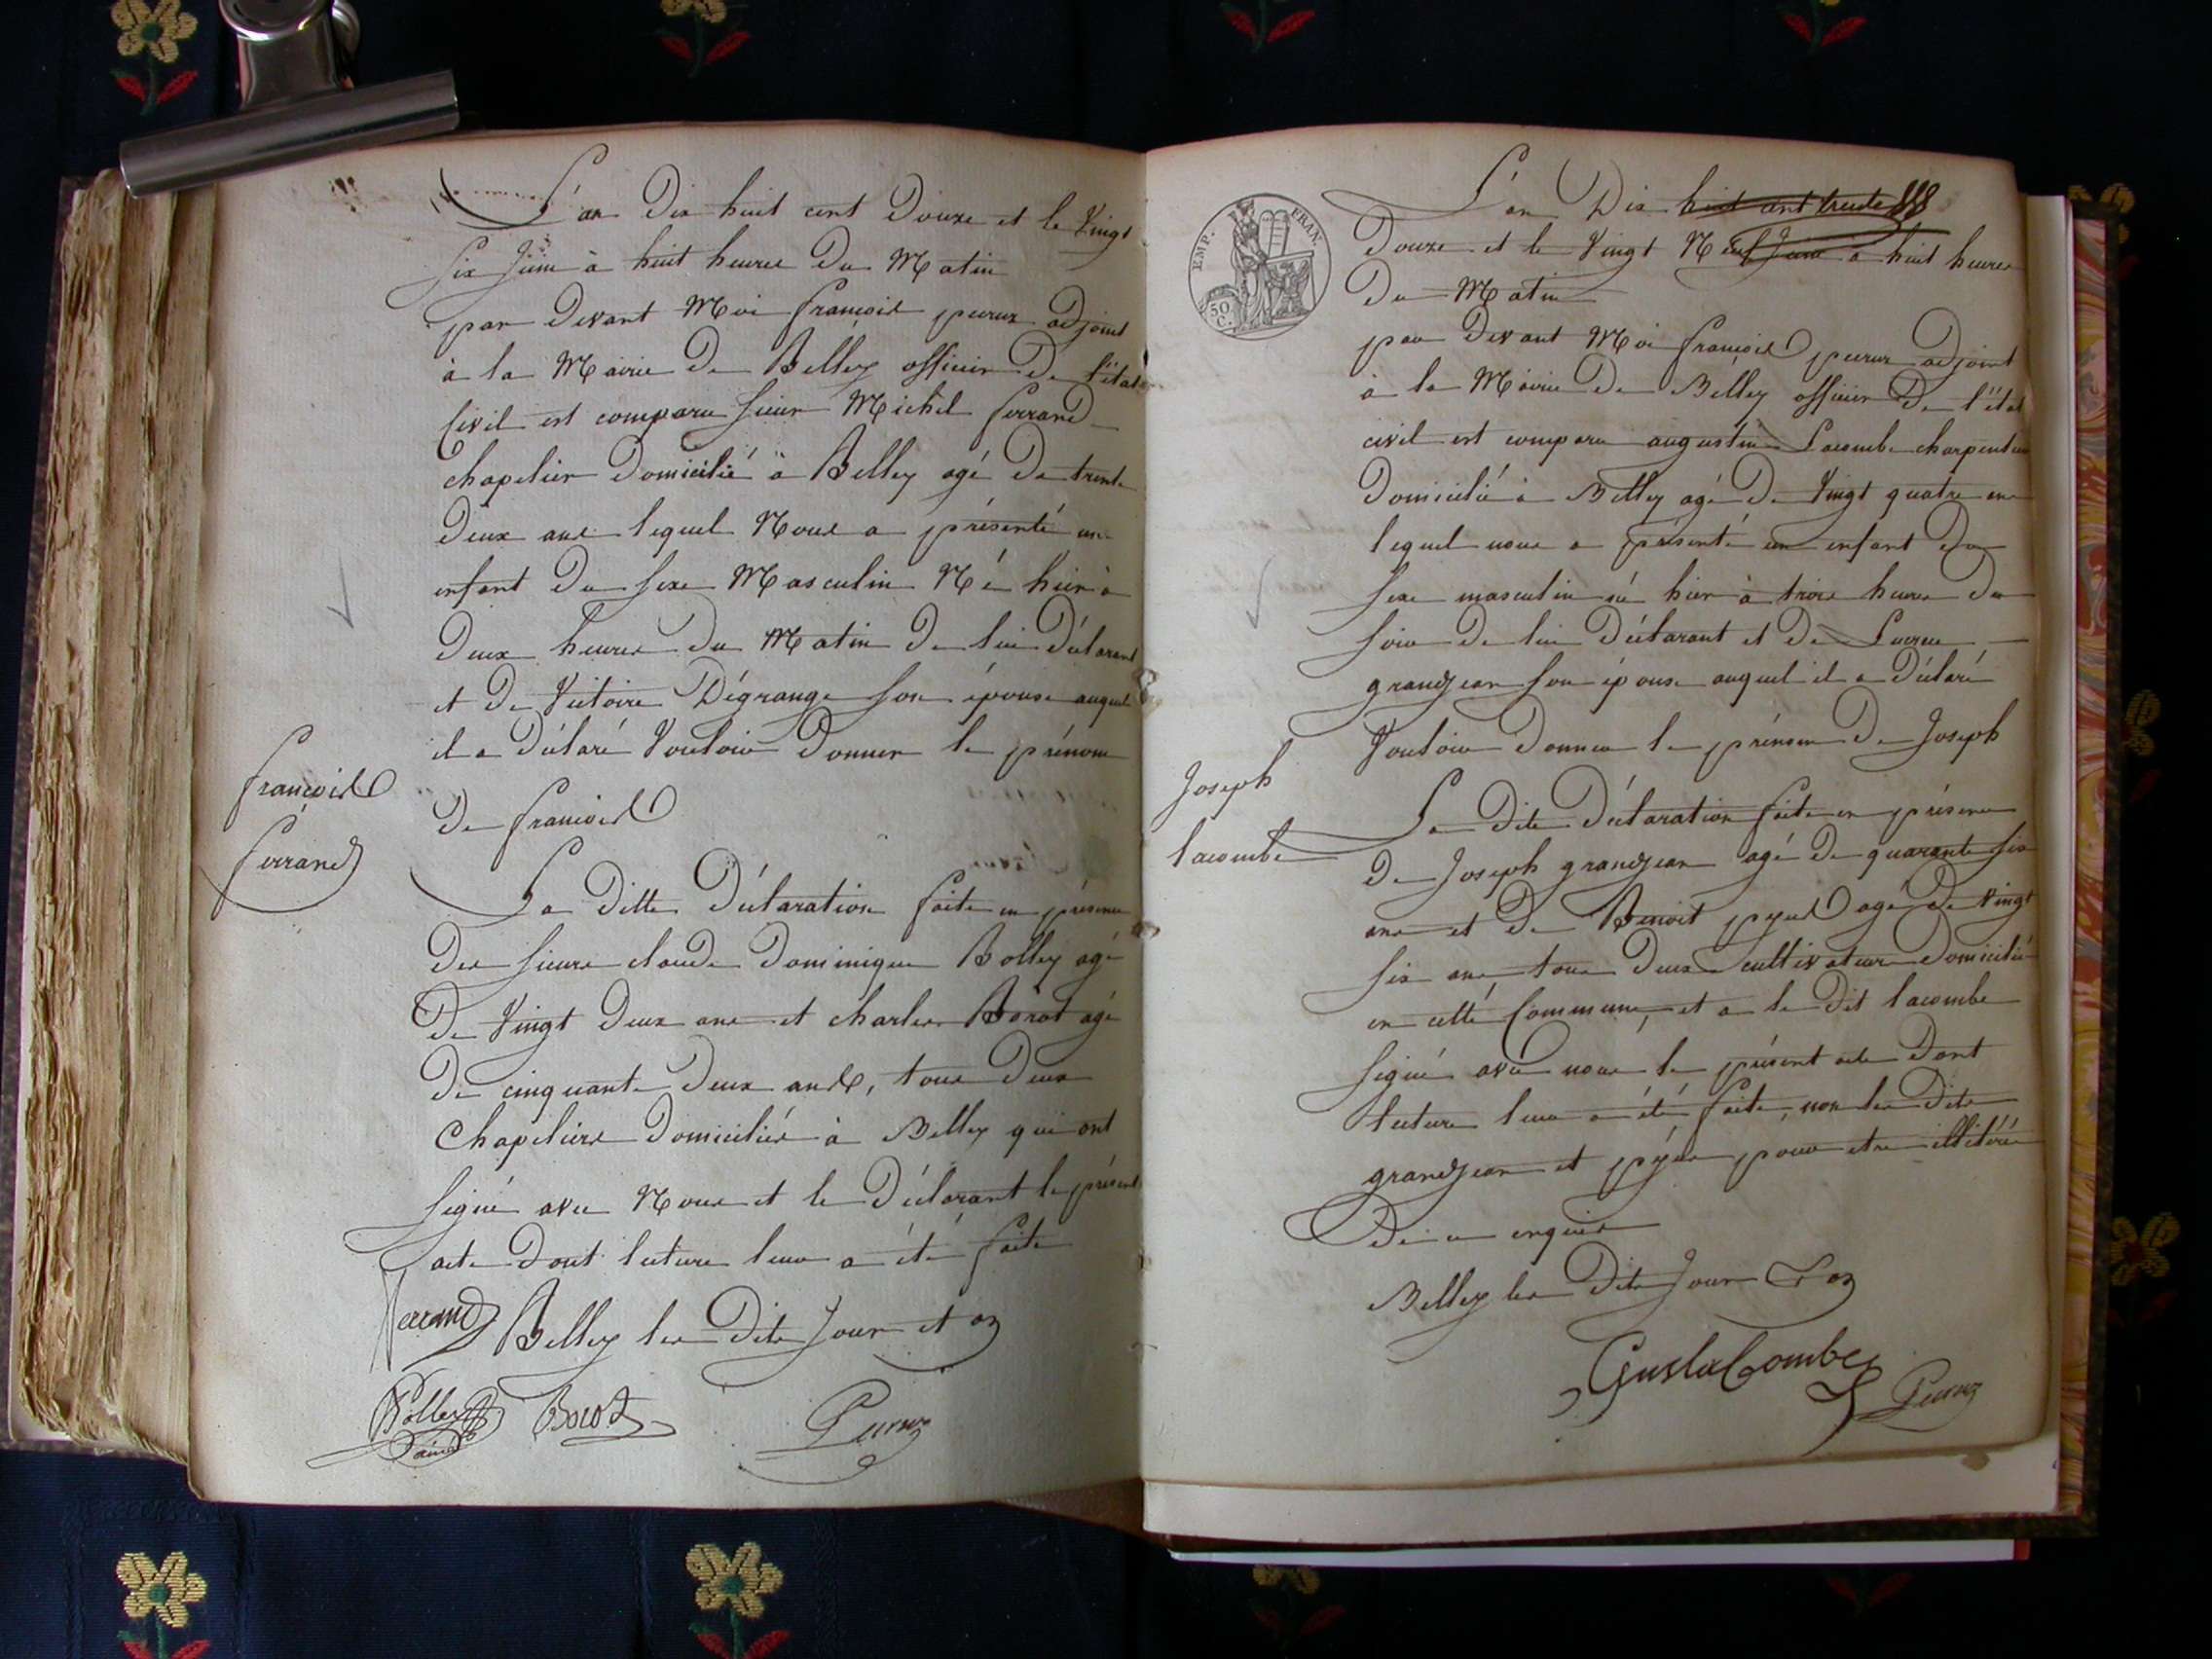 L'an Dix huit cent Douze et le Vingt
Six Juin à huit heures Du Matin
par Devant Moi françois peruz adjoint
à la Mairie De Belley officier De l'état
Civil est comparu sieur Michel ferrand
chapelier Domicilié à Belley agé De trente
Deux ans lequel Nous a présenté un
enfant Du Sexe Masculin Né hier à
Deux heures Du Matin De lui Déclarant
et De Victoire Dégrange Son épouse auquel
il a Déclaré Vouloir Donner le prénom
De françois
françois
ferrand
La Ditte Déclaration faite en présence
Des sieurs claude Dominique Bolley agé
De Vingt Deux ans et charles Borot agé
De cinquante Deux ans, tous Deux
Chapeliers Domiciliés à Belley qui ont
Signé avec Nous et le Déclarant le présent
acte Dont lecture leur a été faite
Belley les Dits Jour et an
ferrand
Bolley
Borot
EMP. FRAN.
50
C.
L'an Dix huit cent
Douze et le Vingt Neuf Juin à huit heures
Du Matin
par Devant Moi françois peruz adjoint
à la Mairie De Belley officier De l'état
civil est comparu augustin Lacombe charpentier
Domicilié à Belley agé De Vingt quatre ans
lequel nous a présenté un enfant Du
Sexe masculin né hier à trois heures Du
Soir De lui Déclarant et De
grandjean Son épouse auquel il a Déclaré
Vouloir Donner le prénom De Joseph
Joseph
lacombe
La Dite Déclaration faite en présence
De Joseph grandjean agé De quarante six
ans et De Benoit agé De Vingt
six ans, tous Deux cultivateurs Domiciliés
en cette Commune, et a le Dit lacombe
Signé avec nous le présent acte Dont
lecture leur a été faite, non les Dits
grandjean et pour etre illitérés
De ce enquis
Belley les Dits Jour & an
Gust laCombe